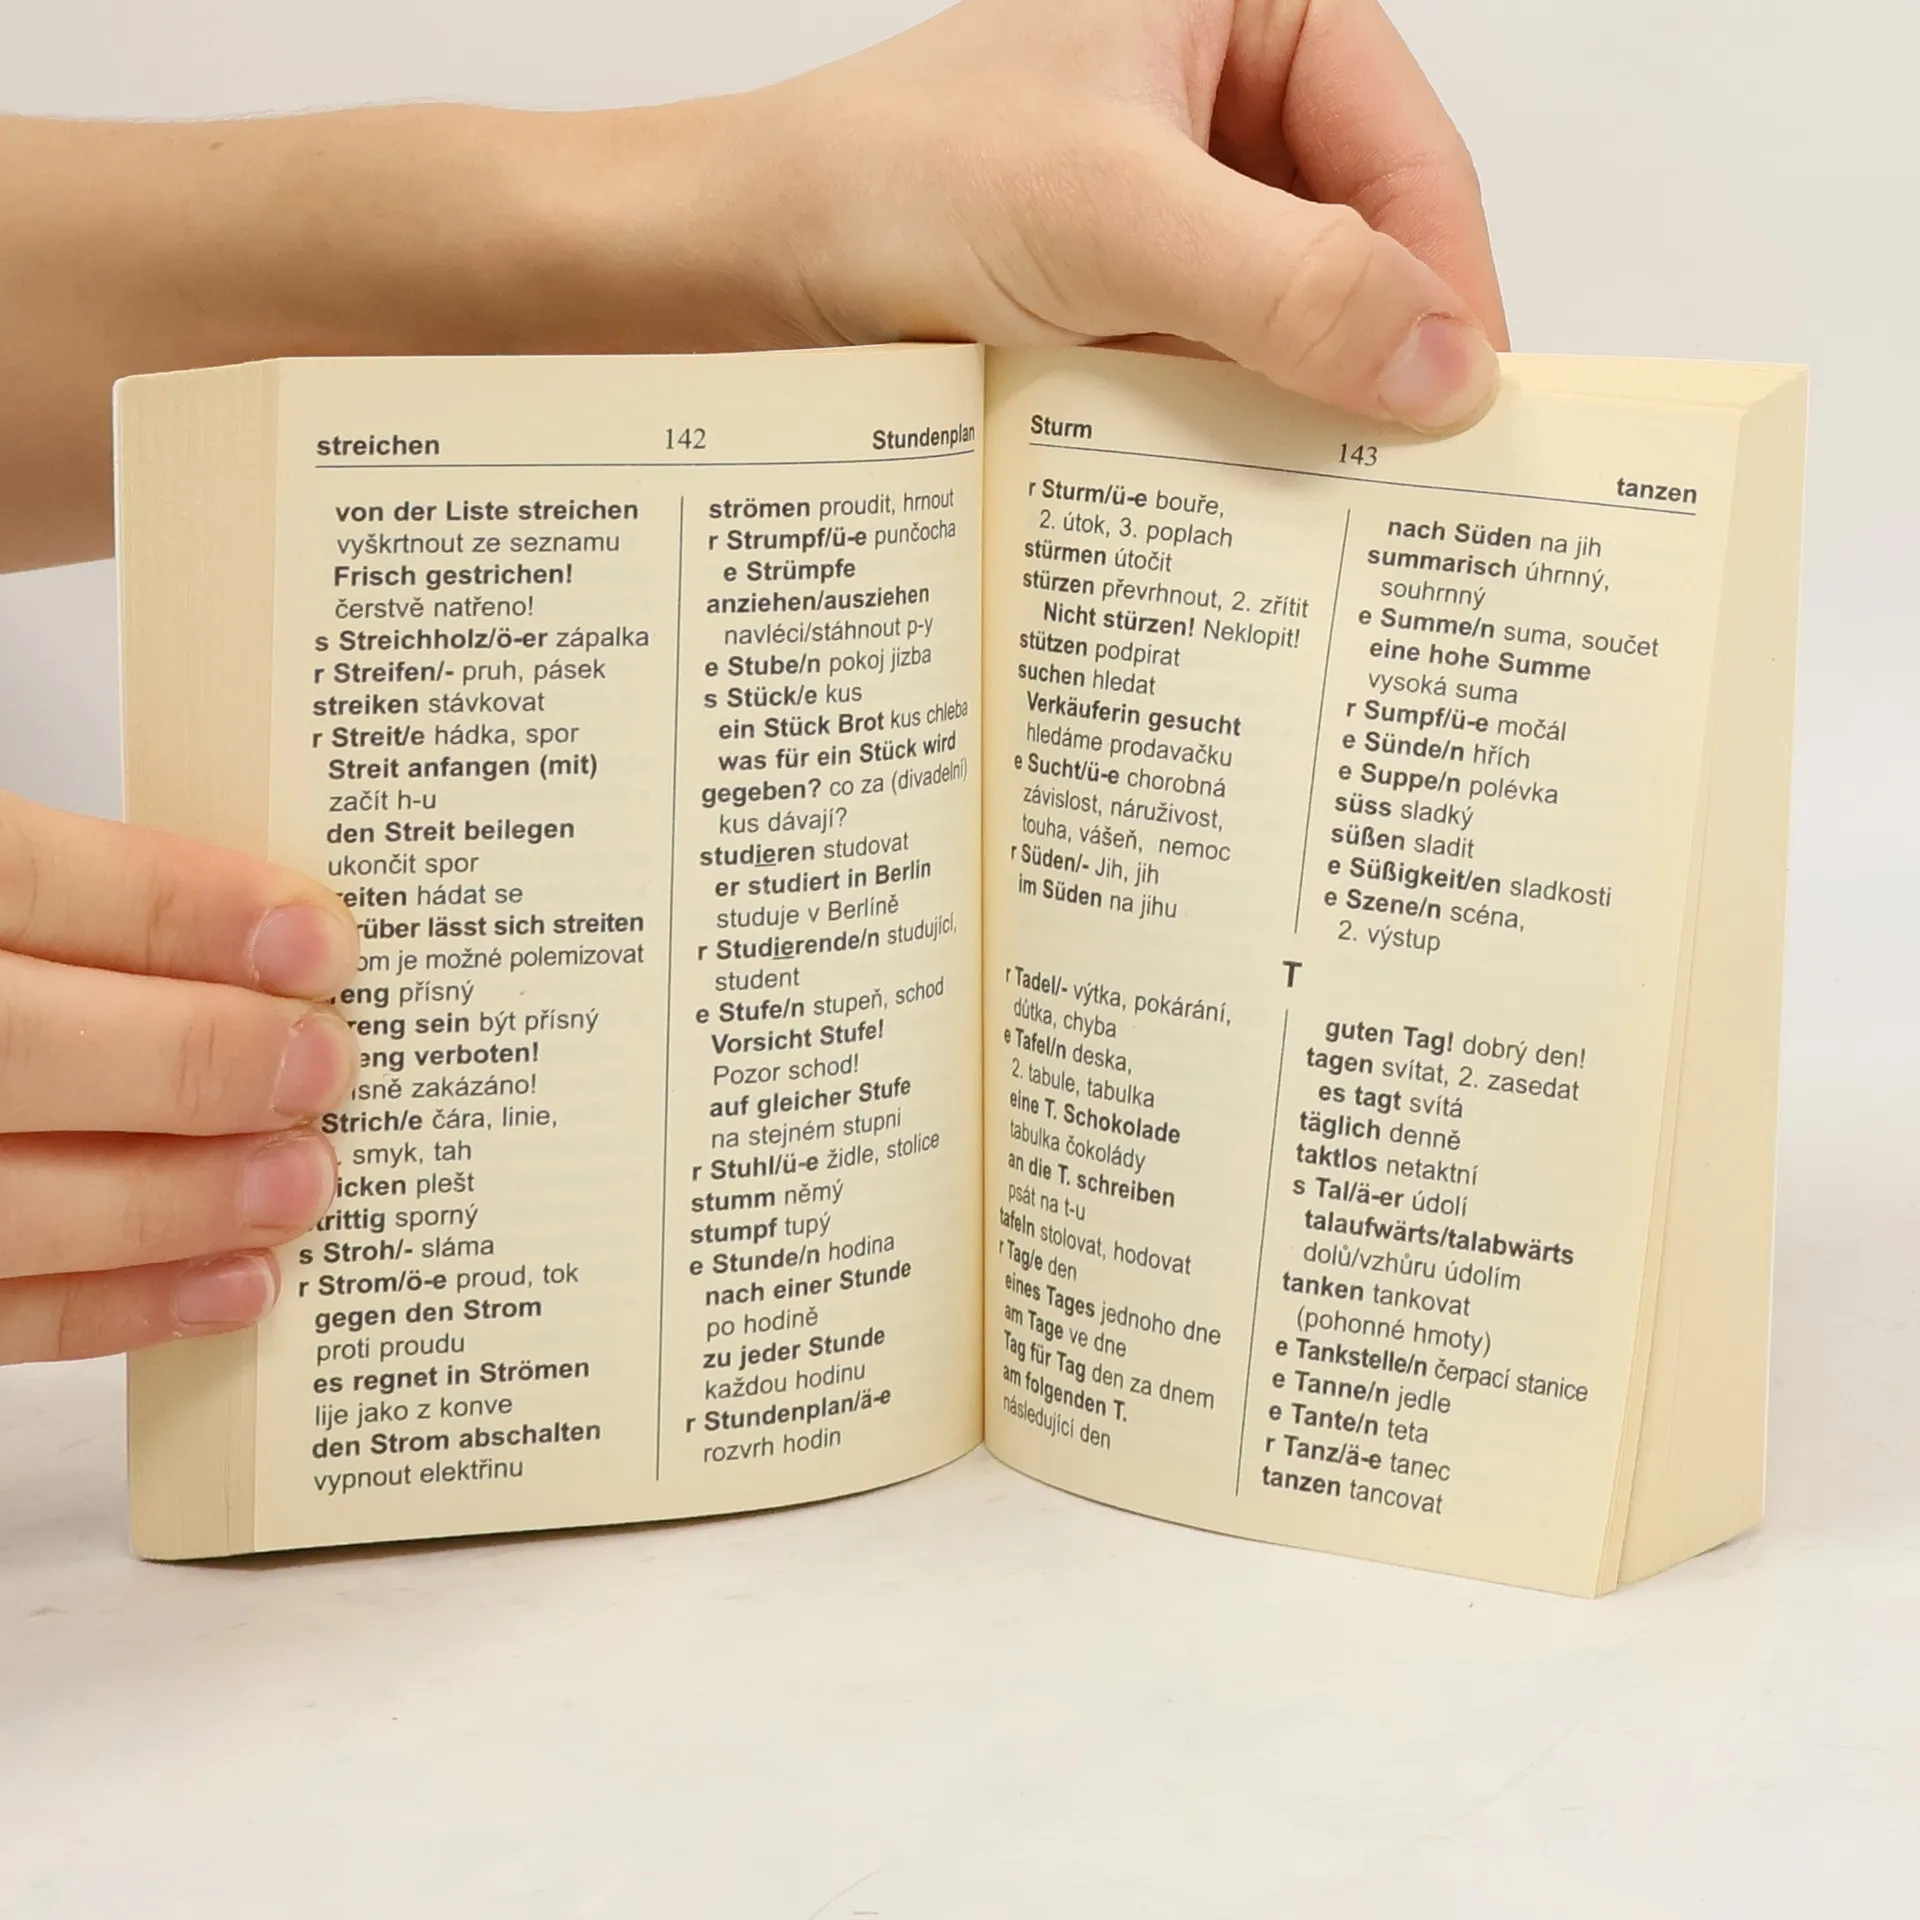 streichen 142 Stundenplan
von der Liste streichen
vyškrtnout ze seznamu
Frisch gestrichen!
čerstvě natřeno!
s Streichholz/ö-er zápalka
r Streifen/- pruh, pásek
streiken stávkovat
r Streit/e hádka, spor
Streit anfangen (mit)
začít h-u
den Streit beilegen
ukončit spor
reiten hádat se
rüber lässt sich streiten
om je možné polemizovat
reng přísný
reng sein být přísný
eng verboten!
ísně zakázáno!
Strich/e čára, linie,
. smyk, tah
icken plešt
trittig sporný
s Stroh/- sláma
r Strom/ö-e proud, tok
gegen den Strom
proti proudu
es regnet in Strömen
lije jako z konve
den Strom abschalten
vypnout elektřinu
strömen proudit, hrnout
r Strumpf/ü-e punčocha
e Strümpfe
anziehen/ausziehen
navléci/stáhnout p-y
e Stube/n pokoj jizba
s Stück/e kus
ein Stück Brot kus chleba
was für ein Stück wird
gegeben? co za (divadelní)
kus dávají?
studieren studovat
er studiert in Berlin
studuje v Berlíně
r Studierende/n studující,
student
e Stufe/n stupeň, schod
Vorsicht Stufe!
Pozor schod!
auf gleicher Stufe
na stejném stupni
r Stuhl/ü-e židle, stolice
stumm němý
stumpf tupý
e Stunde/n hodina
nach einer Stunde
po hodině
zu jeder Stunde
každou hodinu
r Stundenplan/ä-e
rozvrh hodin
Sturm 143 tanzen
r Sturm/ü-e bouře,
2. útok, 3. poplach
stürmen útočit
stürzen převrhnout, 2. zřítit
Nicht stürzen! Neklopit!
stützen podpirat
suchen hledat
Verkäuferin gesucht
hledáme prodavačku
e Sucht/ü-e chorobná
závislost, náruživost,
touha, vášeň, nemoc
r Süden/- Jih, jih
im Süden na jihu
nach Süden na jih
summarisch úhrnný,
souhrnný
e Summe/n suma, součet
eine hohe Summe
vysoká suma
r Sumpf/ü-e močál
e Sünde/n hřích
e Suppe/n polévka
süss sladký
süßen sladit
e Süßigkeit/en sladkosti
e Szene/n scéna,
2. výstup
T
r Tadel/- výtka, pokárání,
důtka, chyba
e Tafel/n deska,
2. tabule, tabulka
eine T. Schokolade
tabulka čokolády
an die T. schreiben
psát na t-u
tafeln stolovat, hodovat
r Tag/e den
eines Tages jednoho dne
am Tage ve dne
Tag für Tag den za dnem
am folgenden T.
následující den
guten Tag! dobrý den!
tagen svítat, 2. zasedat
es tagt svítá
täglich denně
taktlos netaktní
s Tal/ä-er údolí
talaufwärts/talabwärts
dolů/vzhůru údolím
tanken tankovat
(pohonné hmoty)
e Tankstelle/n čerpací stanice
e Tanne/n jedle
e Tante/n teta
r Tanz/ä-e tanec
tanzen tancovat